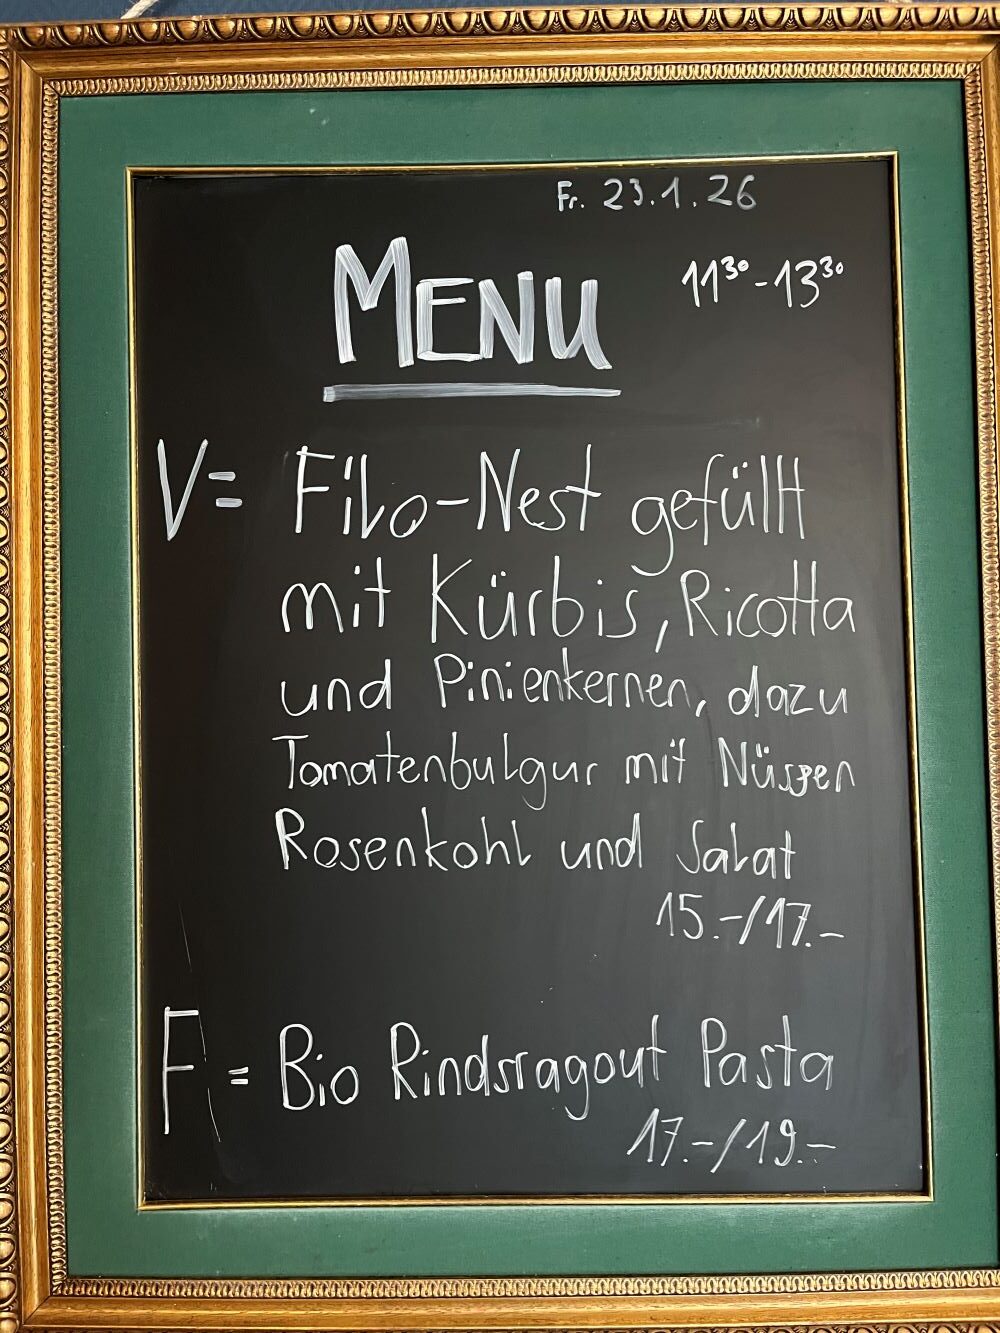 Fr. 23.1.26
MENU
11³⁰-13³⁰
V= Filo-Nest gefüllt
mit Kürbis, Ricotta
und Pinienkernen, dazu
Tomatenbulgur mit Nüssen
Rosenkohl und Salat
15.-/17.-
F = Bio Rindsragout Pasta
17.-/19.-